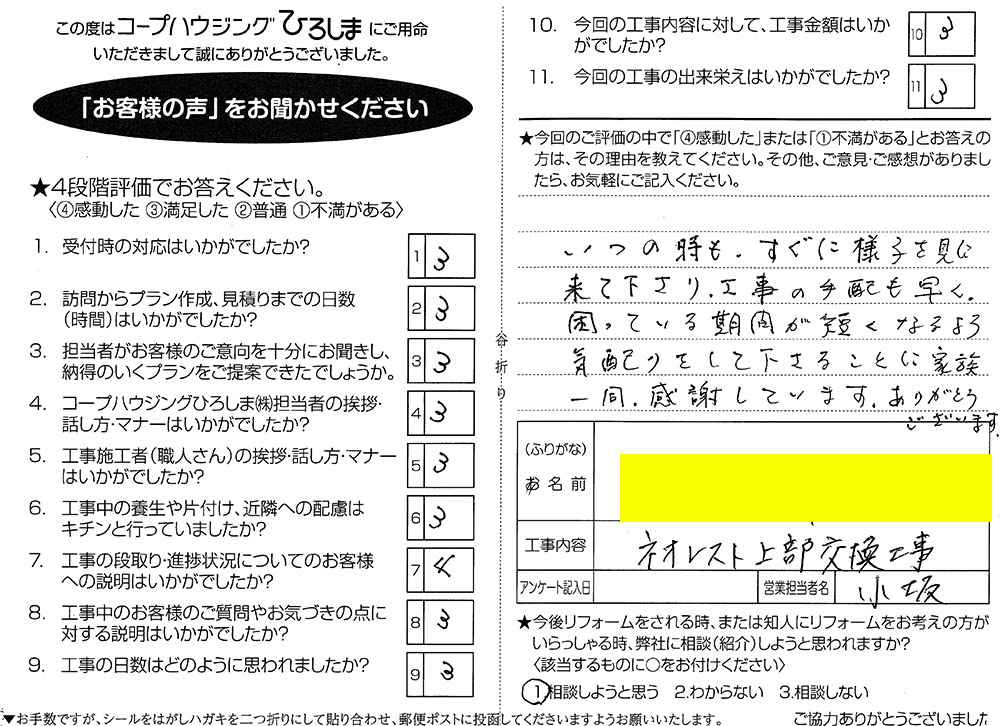 この度はコープハウジングひろしまにご用命
いただきまして誠にありがとうございました。
「お客様の声」をお聞かせください
★4段階評価でお答えください。
〈④感動した ③満足した ②普通 ①不満がある〉
1. 受付時の対応はいかがでしたか?
1 3
2. 訪問からプラン作成、見積りまでの日数
（時間）はいかがでしたか?
2 3
3. 担当者がお客様のご意向を十分にお聞きし、
納得のいくプランをご提案できたでしょうか。
3 3
4. コープハウジングひろしま㈱担当者の挨拶・
話し方・マナーはいかがでしたか?
4 3
5. 工事施工者（職人さん）の挨拶・話し方・マナー
はいかがでしたか?
5 3
6. 工事中の養生や片付け、近隣への配慮は
キチンと行っていましたか?
6 3
7. 工事の段取り・進捗状況についてのお客様
への説明はいかがでしたか?
7 4
8. 工事中のお客様のご質問やお気づきの点に
対する説明はいかがでしたか?
8 3
9. 工事の日数はどのように思われましたか?
9 3
▼お手数ですが、シールをはがしハガキを二つ折りにして貼り合わせ、郵便ポストに投函してくださいますようお願いいたします。
谷折り
10. 今回の工事内容に対して、工事金額はいか
がでしたか?
10 3
11. 今回の工事の出来栄えはいかがでしたか?
11 3
★今回のご評価の中で「④感動した」または「①不満がある」とお答えの
方は、その理由を教えてください。その他、ご意見・ご感想がありまし
たら、お気軽にご記入ください。
いつの時も、すぐに様子を見に
来て下さり、工事の手配も早く、
困っている期間が短くなるよう
気配りをして下さることに家族
一同、感謝しています。ありがとう
ございます。
（ふりがな）
お名前
工事内容 ネオレスト上部交換工事
アンケート記入日 営業担当者名 小坂
★今後リフォームをされる時、または知人にリフォームをお考えの方が
いらっしゃる時、弊社に相談（紹介）しようと思われますか?
〈該当するものに○をお付けください〉
1.相談しようと思う 2.わからない 3.相談しない
ご協力ありがとうございました